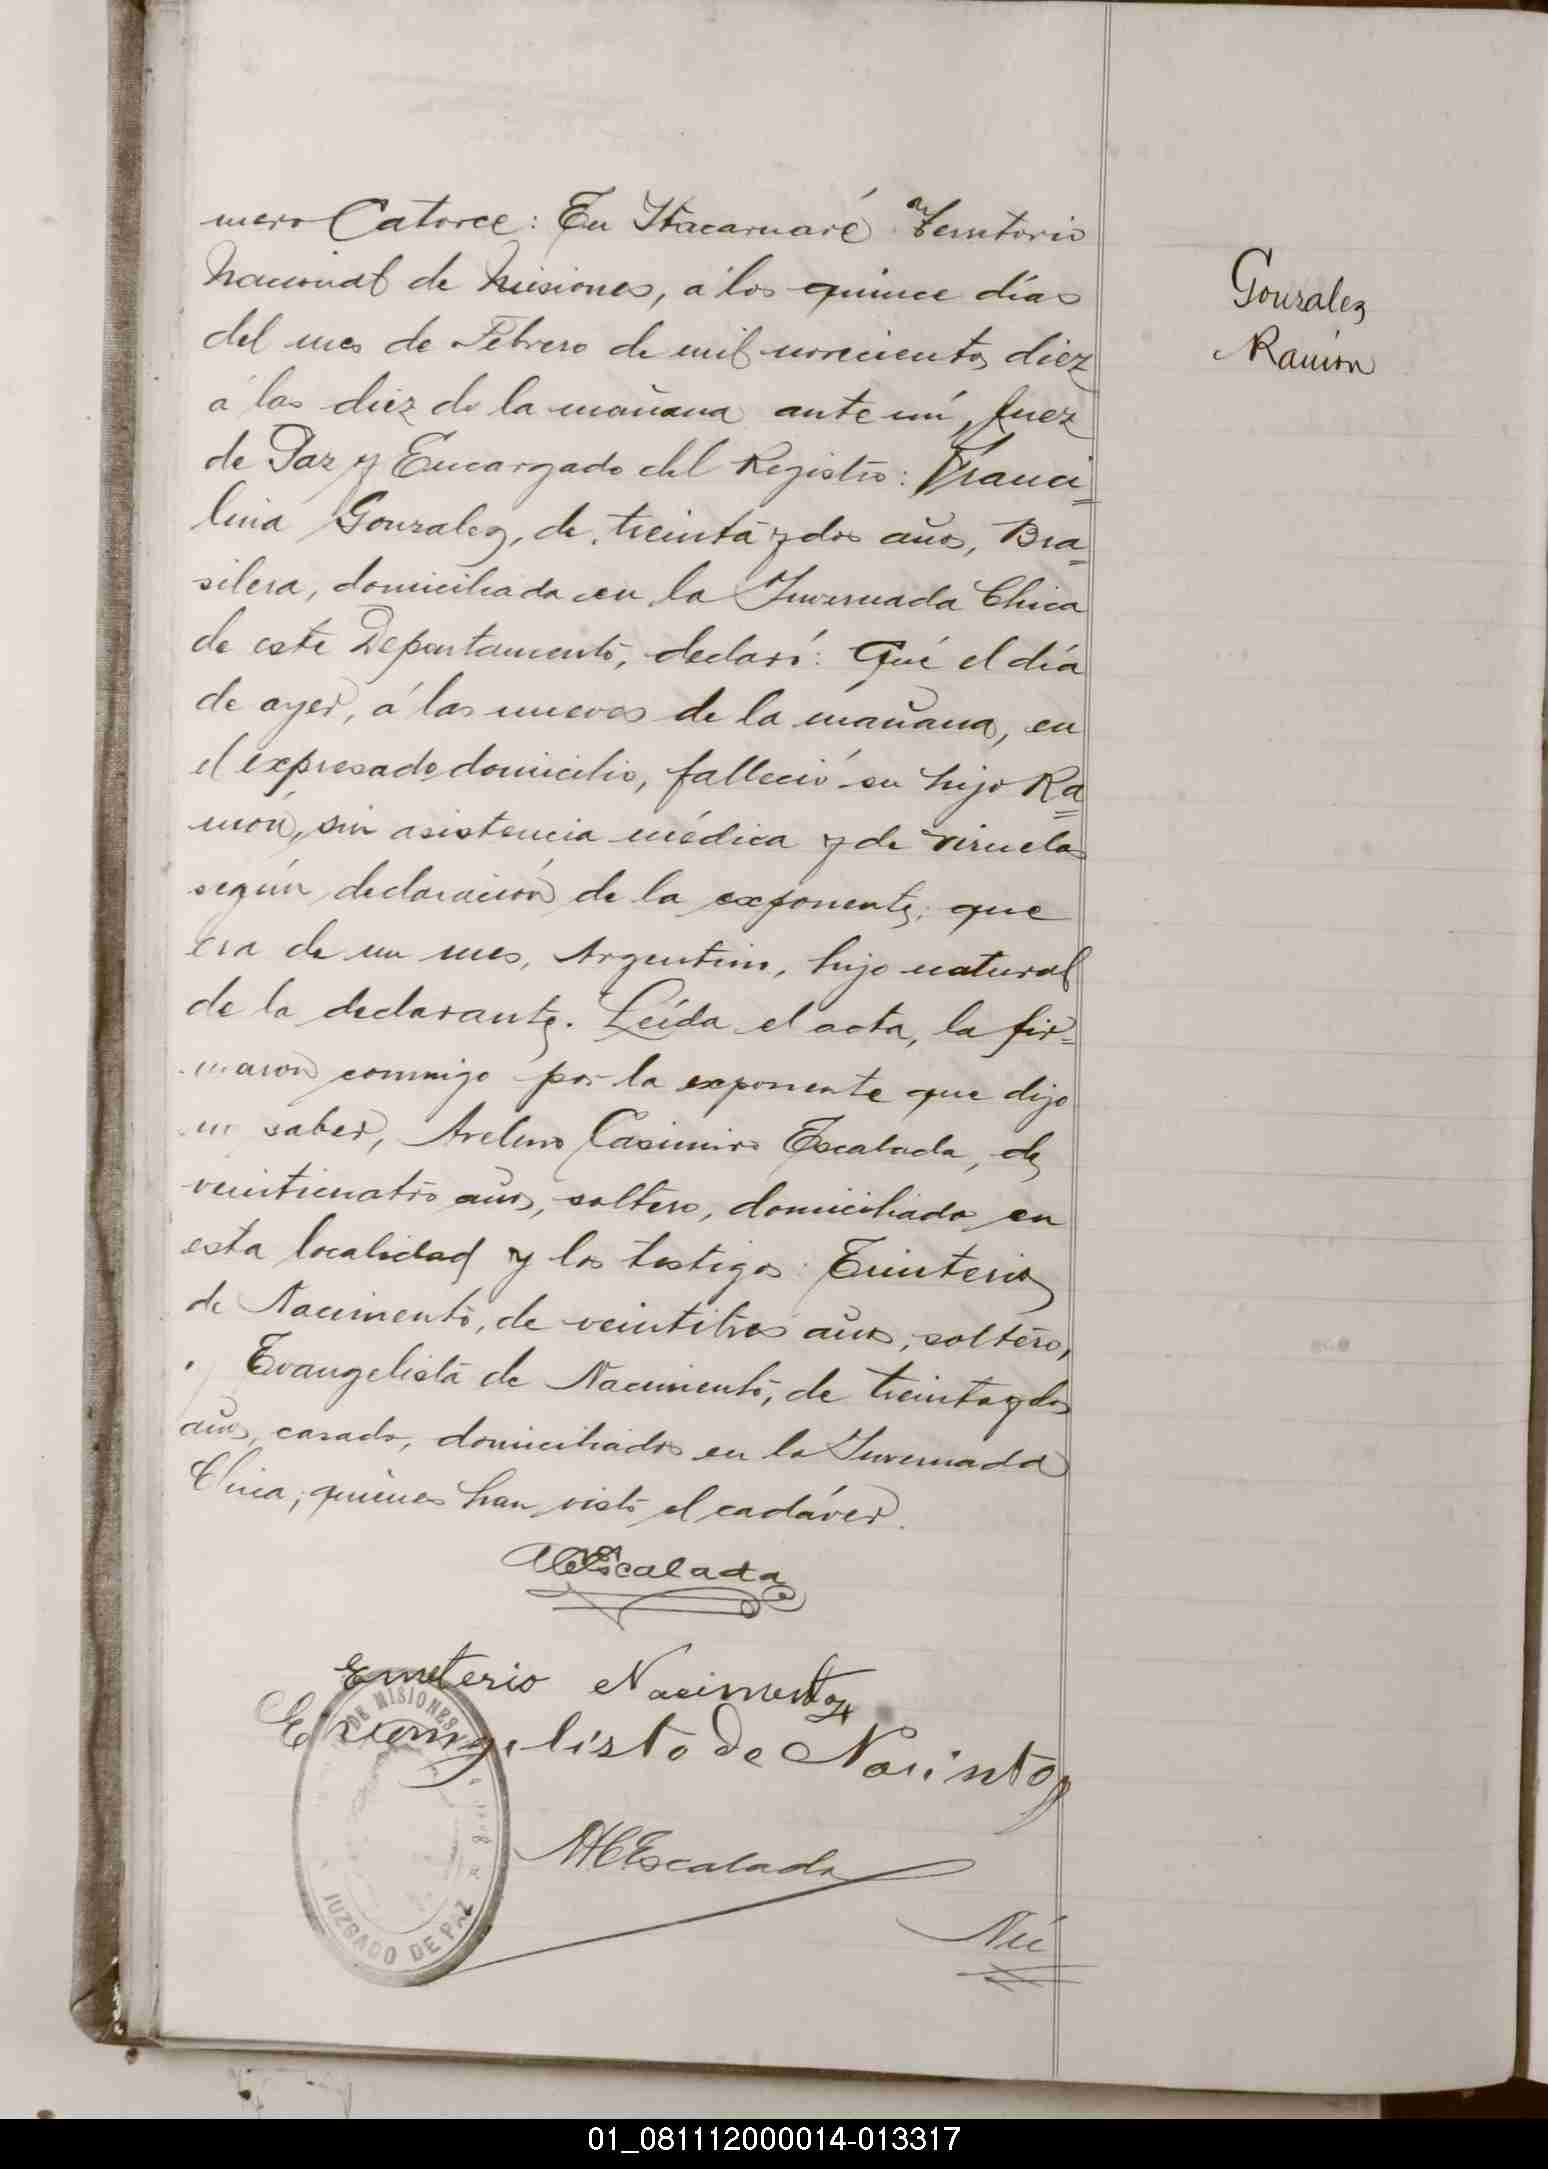 mero Catorce: En Itacaruaré Territorio
Nacional de Misiones, á los quince días
del mes de Febrero de mil novecientos diez
á las diez de la mañana ante mí, Juez
de Paz y Encargado del Registro: Franci=
lina Gonzalez, de treinta y dos años, Bra=
silera, domiciliada en la Invernada Chica
de este Departamento, declaró: Qué el día
de ayer, á las nueve de la mañana, en
el expresado domicilio, falleció su hijo Ra=
món, sin asistencia médica y de viruela
según declaración de la exponente; que
era de un mes, Argentino, hijo natural
de la declarante. Leída el acta, la fir=
maron conmigo por la exponente que dijo
no saber, Avelino Casimiro Escalada, de
veinticuatro años, soltero, domiciliado en
esta localidad y los testigos: Emeterio
de Nacimento, de veintitres años, soltero,
y Evangelista de Nacimento, de treinta y dos
años, casado, domiciliados en la Invernada
Chica; quienes han visto el cadáver.
Gonzalez
Ramón
ACEscalada
Emeterio Nacimento
Evangelisto de Nasinto
Escalada
DE MISIONES
JUZGADO DE PAZ
Nú
01_081112000014-013317